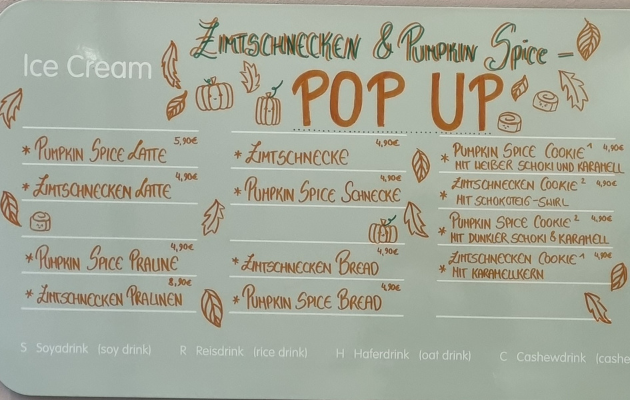 Zimtschnecken & Pumpkin Spice –
Ice Cream
POP UP
* Pumpkin Spice Latte 5,90€
* Zimtschnecken Latte 4,90€
* Pumpkin Spice Praline 4,90€
* Zimtschnecken Pralinen 8,90€
* Zimtschnecke 4,90€
* Pumpkin Spice Schnecke 4,90€
* Zimtschnecken Bread 4,90€
* Pumpkin Spice Bread 4,90€
* Pumpkin Spice Cookie ¹ 4,90€
mit weißer Schoki und Karamell
* Zimtschnecken Cookie ² 4,90€
mit Schokoteig-Swirl
* Pumpkin Spice Cookie ² 4,90€
mit dunkler Schoki & Karamell
* Zimtschnecken Cookie ¹ 4,90€
mit Karamellkern
S Soyadrink (soy drink) R Reisdrink (rice drink) H Haferdrink (oat drink) C Cashewdrink (cashe